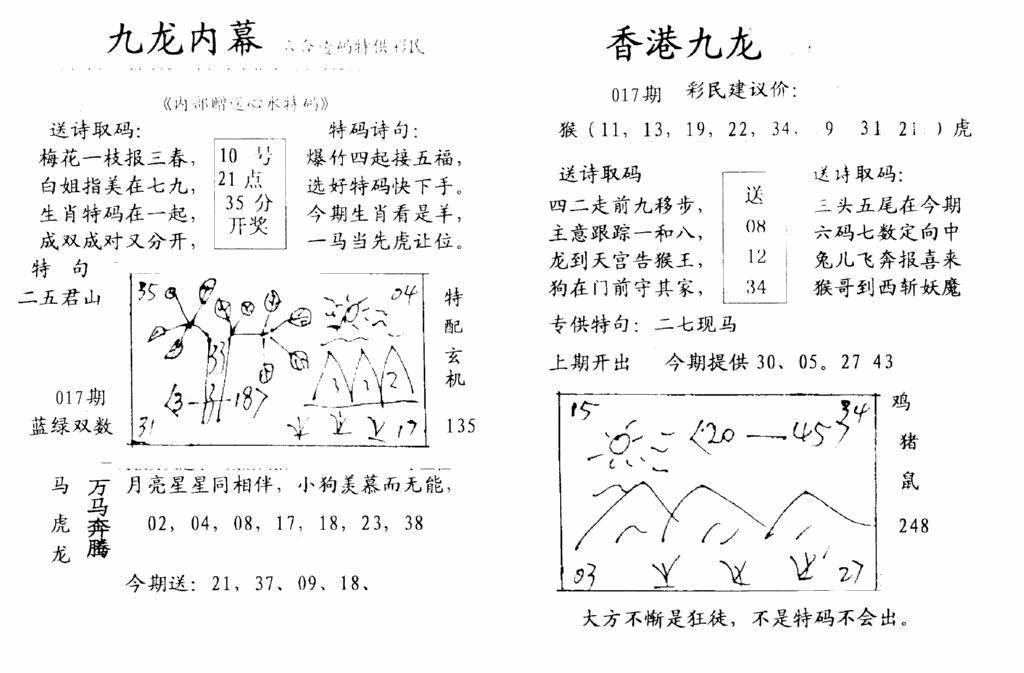 九龙内幕
《内部赠送心水特码》
送诗取码：
梅花一枝报三春，
白姐指美在七九，
生肖特码在一起，
成双成对又分开，
10 号
21 点
35 分
开奖
特码诗句：
爆竹四起接五福，
选好特码快下手。
今期生肖看是羊，
一马当先虎让位。
特 句
二五君山
017期
蓝绿双数
35
04
33
3
1
2
<3-3-187
31
17
特配玄机
135
马虎龙
万马奔腾
月亮星星同相伴，小狗羡慕而无能，
02，04，08，17，18，23，38
今期送：21，37、09、18、
香港九龙
017期 彩民建议价：
猴（11，13，19，22，34， 9 31 21 ）虎
送诗取码
四二走前九移步，
主意跟踪一和八，
龙到天宫告猴王，
狗在门前守其家，
送
08
12
34
送诗取码：
三头五尾在今期
六码七数定向中
兔儿飞奔报喜来
猴哥到西斩妖魔
专供特句：二七现马
上期开出 今期提供 30、05。27 43
15
34
<20—45>
03
27
鸡
猪
鼠
248
大方不惭是狂徒，不是特码不会出。